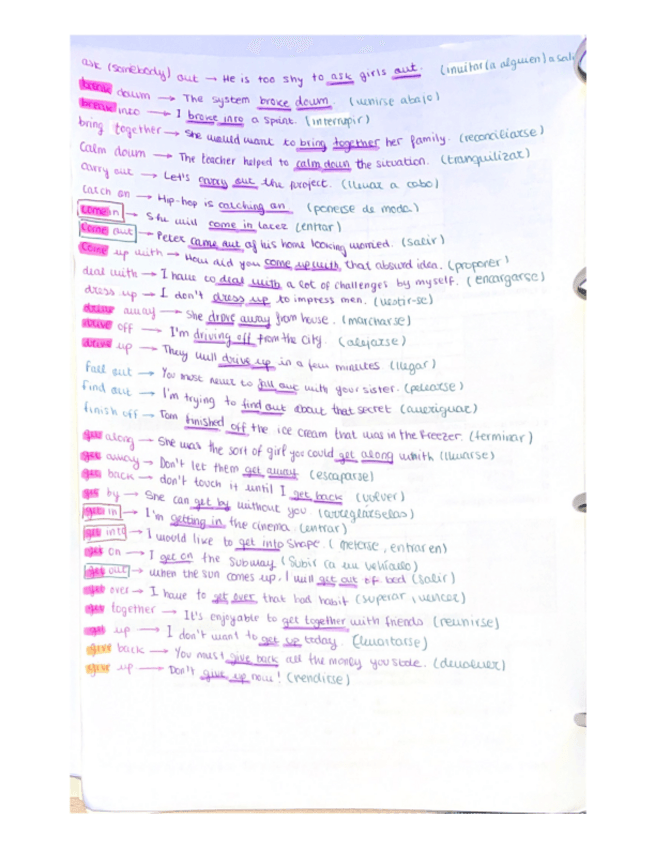 ask (somebody) out → He is too shy to ask girls out. (invitar (a alguien) a salir
break down → The system broke down. (venirse abajo)
break into → I broke into a sprint. (interrupir)
bring together → She would want to bring together her family. (reconciliarse)
Calm down → The teacher helped to calm down the situation. (tranquilizar)
carry out → Let's carry out the project. (llevar a cabo)
catch on → Hip-hop is catching on. (ponerse de moda)
come in → She will come in later (entrar)
come out → Peter came out of his home looking worried. (salir)
come up with → How did you come up with that absurd idea. (proponer)
deal with → I have to deal with a lot of challenges by myself. (encargarse)
dress up → I don't dress up to impress men. (vestir-se)
drive away → She drove away from house. (marcharse)
drive off → I'm driving off from the city. (alejarse)
drive up → They will drive up in a few minutes (llegar)
fall out → You must never to fall out with your sister. (pelearse)
find out → I'm trying to find out about that secret (averiguar)
finish off → Tom finished off the ice cream that was in the freezer. (terminar)
get along → She was the sort of girl you could get along whith (llevarse)
get away → Don't let them get away (escaparse)
get back → don't touch it until I get back (volver)
get by → She can get by without you. (arreglárselas)
get in → I'm getting in the cinema. (entrar)
get into → I would like to get into shape. (meterse, entrar en)
get on → I get on the subway (Subir (a un vehículo)
get out → when the sun comes up, I will get out of bed (salir)
get over → I have to get over that bad habit (superar, vencer)
get together → It's enjoyable to get together with friends (reunirse)
get up → I don't want to get up today. (levantarse)
give back → You must give back all the money you stole. (devolver)
give up → Don't give up now! (rendirse)